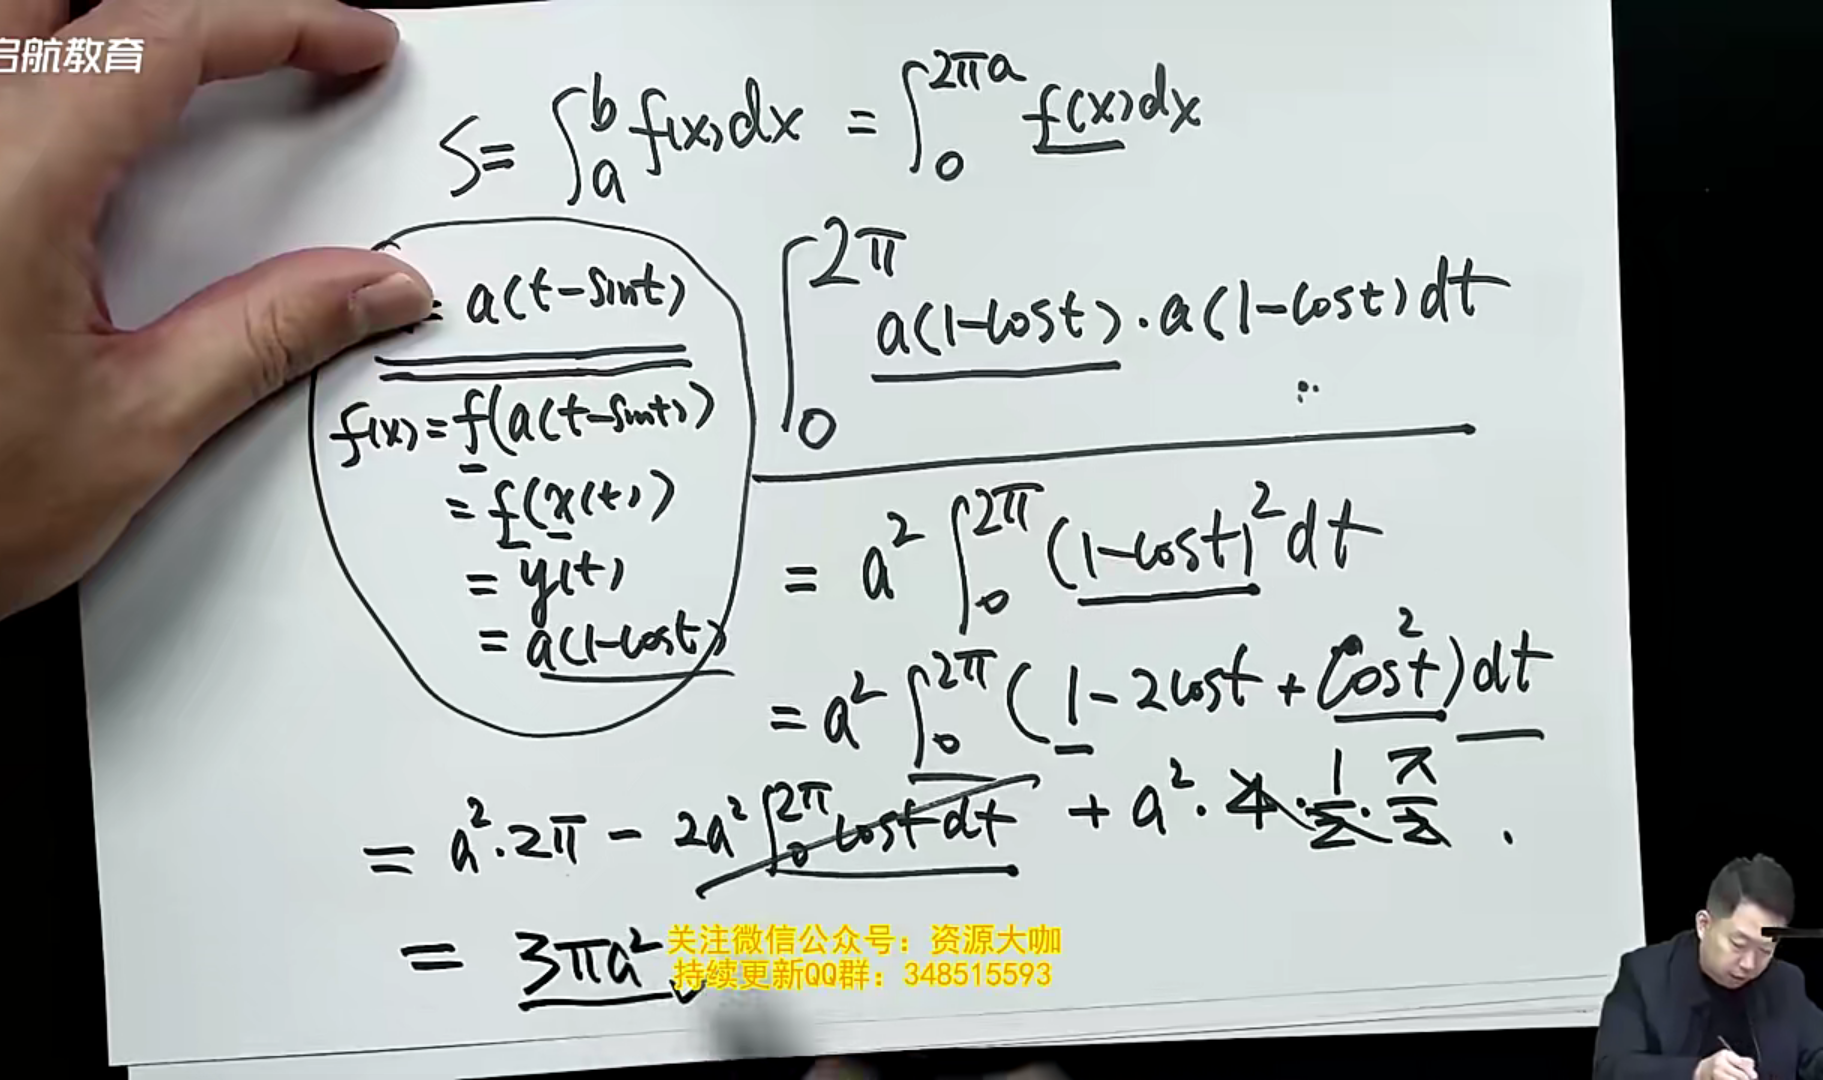 启航教育
S = ∫_a^b f(x)dx = ∫_0^{2πa} f(x)dx
= a(t-sint)
∫_0^{2π} a(1-cost)·a(1-cost)dt
f(x) = f(a(t-sint))
= f(x(t))
= y(t)
= a(1-cost)
= a² ∫_0^{2π} (1-cost)² dt
= a² ∫_0^{2π} (1-2cost+cos²t)dt
= a²·2π - 2a² ∫_0^{2π} cost dt + a²·4·1/2·π/2.
= 3πa²
关注微信公众号：资源大咖
持续更新QQ群：348515593